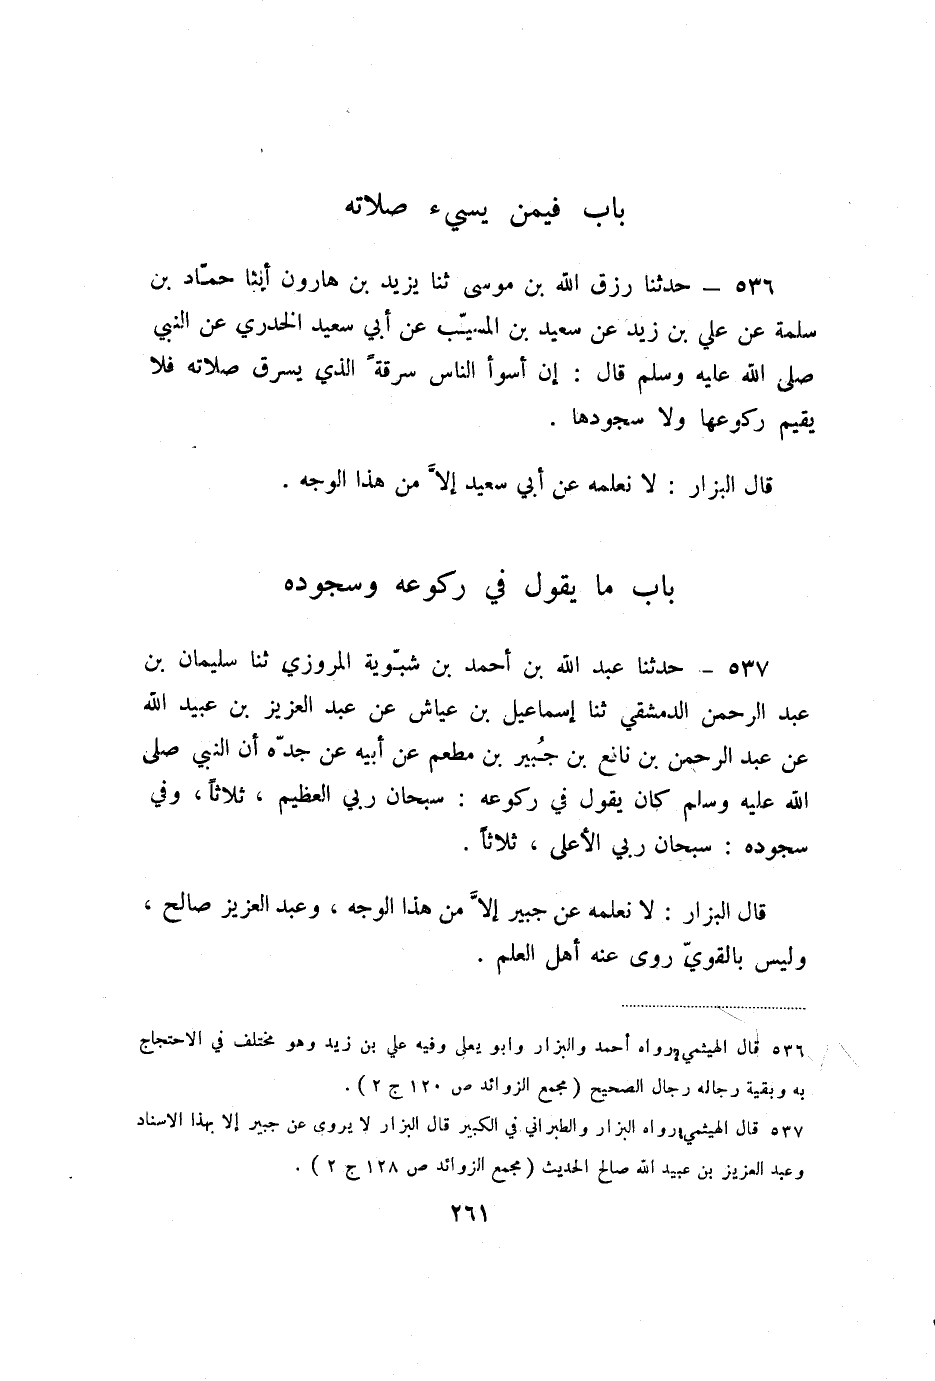 باب فيمن يسيء صلاته
٥٣٦ – حدثنا رزق الله بن موسى ثنا يزيد بن هارون أنبٔا حمّاد بن
سلمة عن علي بن زيد عن سعيد بن المسيّب عن أبي سعيد الخدري عن النبي
صلى الله عليه وسلم قال : إن أسوأ الناس سرقةً الذي يسرق صلاته فلا
يقيم ركوعها ولا سجودها .
قال البزار : لا نعلمه عن أبي سعيد إلاَّ من هذا الوجه .
باب ما يقول في ركوعه وسجوده
٥٣٧ – حدثنا عبد الله بن أحمد بن شبّوية المروزي ثنا سليمان بن
عبد الرحمن الدمشقي ثنا إسماعيل بن عياش عن عبد العزيز بن عبيد الله
عن عبد الرحمن بن نافع بن جُبير بن مطعم عن أبيه عن جدّه أن النبي صلى
الله عليه وسلم كان يقول في ركوعه : سبحان ربي العظيم ، ثلاثاً ، وفي
سجوده : سبحان ربي الأعلى ، ثلاثاً .
قال البزار : لا نعلمه عن جبير إلاَّ من هذا الوجه ، وعبد العزيز صالح ،
وليس بالقويّ روى عنه أهل العلم .
٥٣٦ قال الهيثمي رواه أحمد والبزار وابو يعلى وفيه علي بن زيد وهو مختلف في الاحتجاج
به وبقية رجاله رجال الصحيح ( مجمع الزوائد ص ١٢٠ ج ٢ ) .
٥٣٧ قال الهيثمي رواه البزار والطبراني في الكبير قال البزار لا يروى عن جبير إلا بهذا الاسناد
وعبد العزيز بن عبيد الله صالح الحديث ( مجمع الزوائد ص ١٢٨ ج ٢ ) .
٢٦١